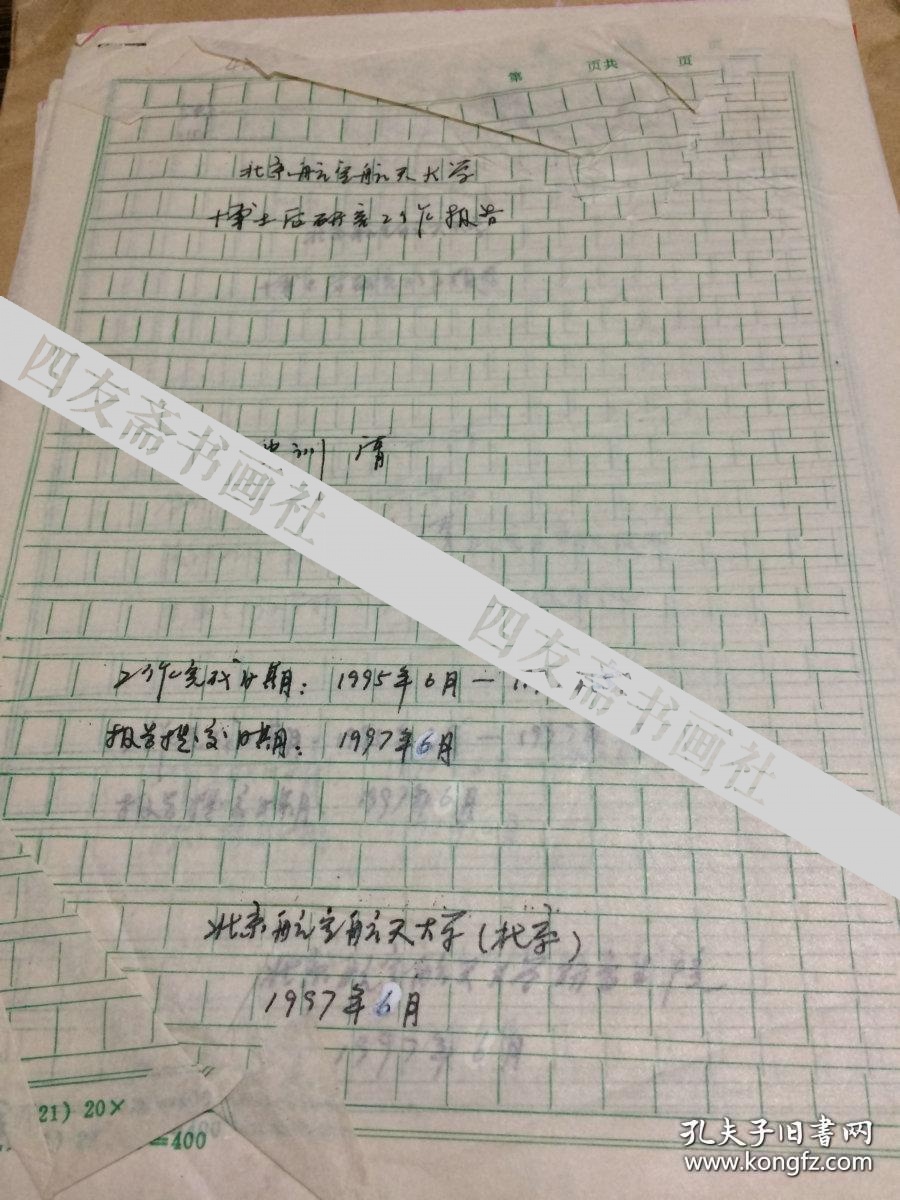 第 页共 页
北京航空航天大学
博士后研究工作报告
训 清
工作完成日期：1995年6月—
报告提交日期：1997年6月
北京航空航天大学（北京）
1997年6月
21) 20×
=400
四友斋书画社
四友斋书画社
孔夫子旧书网
www.kongfz.com